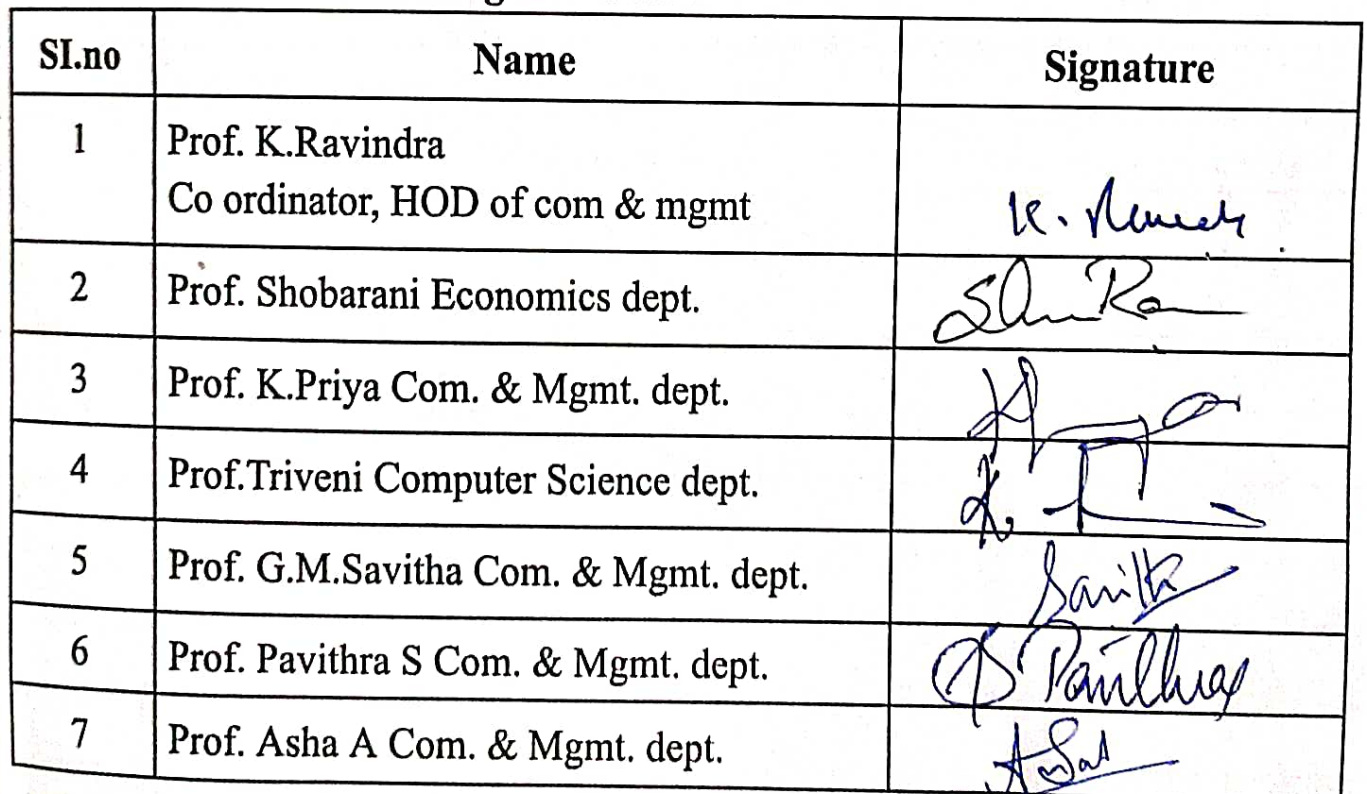 SI.no Name Signature
1 Prof. K.Ravindra
Co ordinator, HOD of com & mgmt
2 Prof. Shobarani Economics dept.
3 Prof. K.Priya Com. & Mgmt. dept.
4 Prof.Triveni Computer Science dept.
5 Prof. G.M.Savitha Com. & Mgmt. dept. Savitha
6 Prof. Pavithra S Com. & Mgmt. dept.
7 Prof. Asha A Com. & Mgmt. dept.